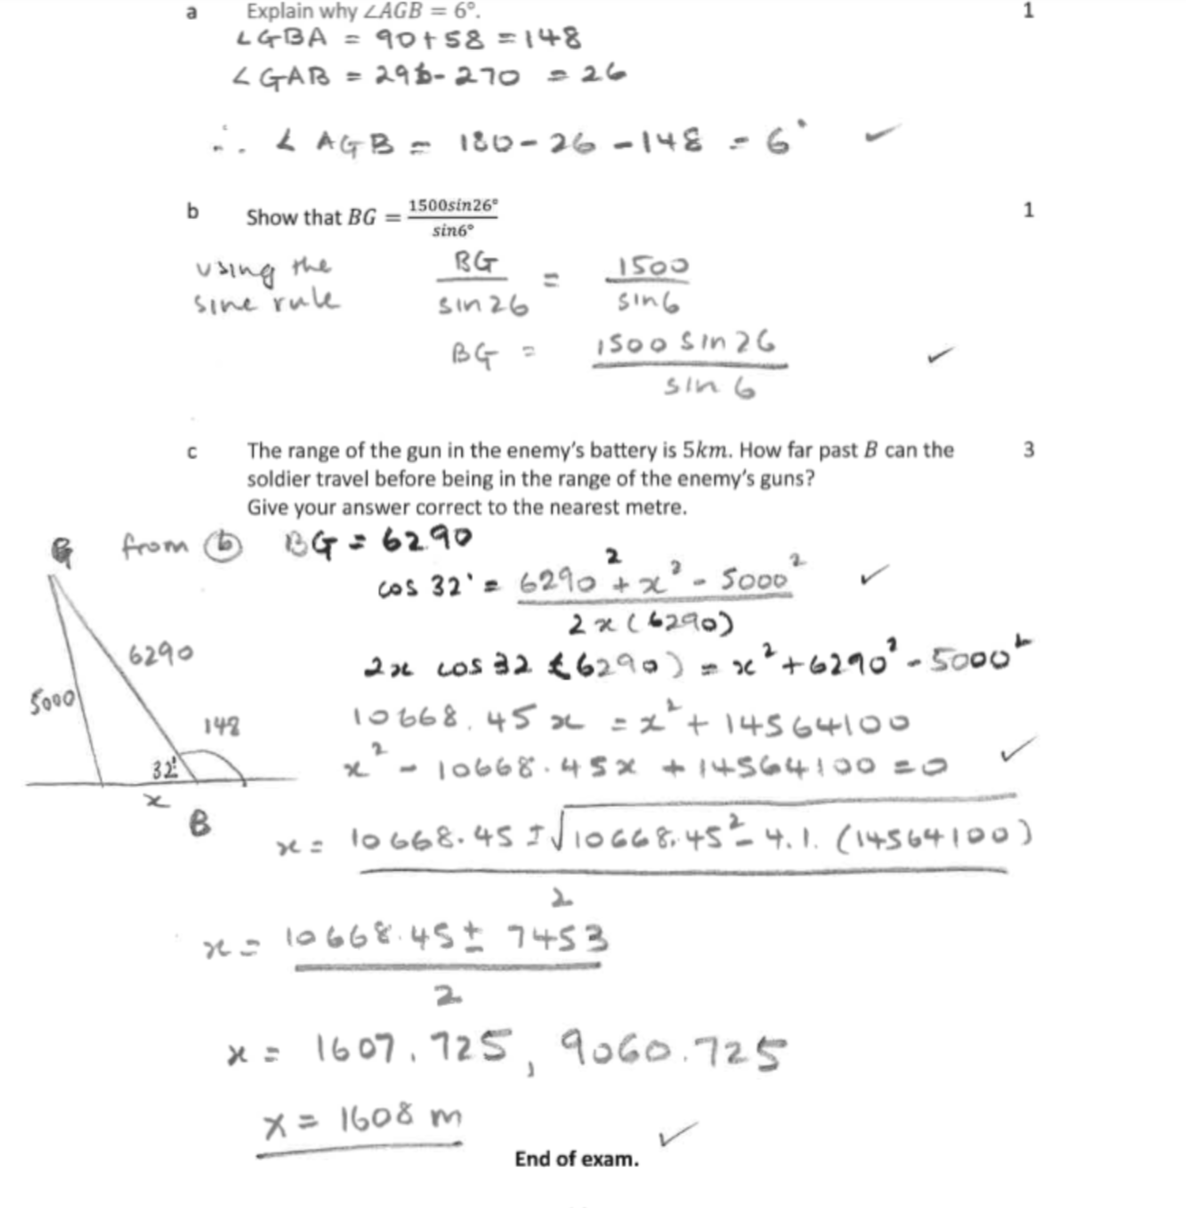 a Explain why ∠AGB = 6°. 1
∠GBA = 90+58 = 148
∠GAB = 296-270 = 26
∴ ∠AGB = 180-26-148 = 6° ✓
b Show that BG = 1500sin26°/sin6° 1
using the sine rule
BG/sin 26 = 1500/sin6
BG = 1500 sin 26/sin 6 ✓
c The range of the gun in the enemy's battery is 5km. How far past B can the 3
soldier travel before being in the range of the enemy's guns?
Give your answer correct to the nearest metre.
from (b) BG = 6290
G
6290
5000
148
32°
x
B
cos 32° = 6290² + x² - 5000² / 2x(6290) ✓
2x cos 32 (6290) = x² + 6290² - 5000²
10668.45x = x² + 14564100
x² - 10668.45x + 14564100 = 0 ✓
x = 10668.45 ± √10668.45² - 4.1.(14564100) / 2
x = 10668.45 ± 7453 / 2
x = 1607.725, 9060.725
x = 1608 m ✓
End of exam.